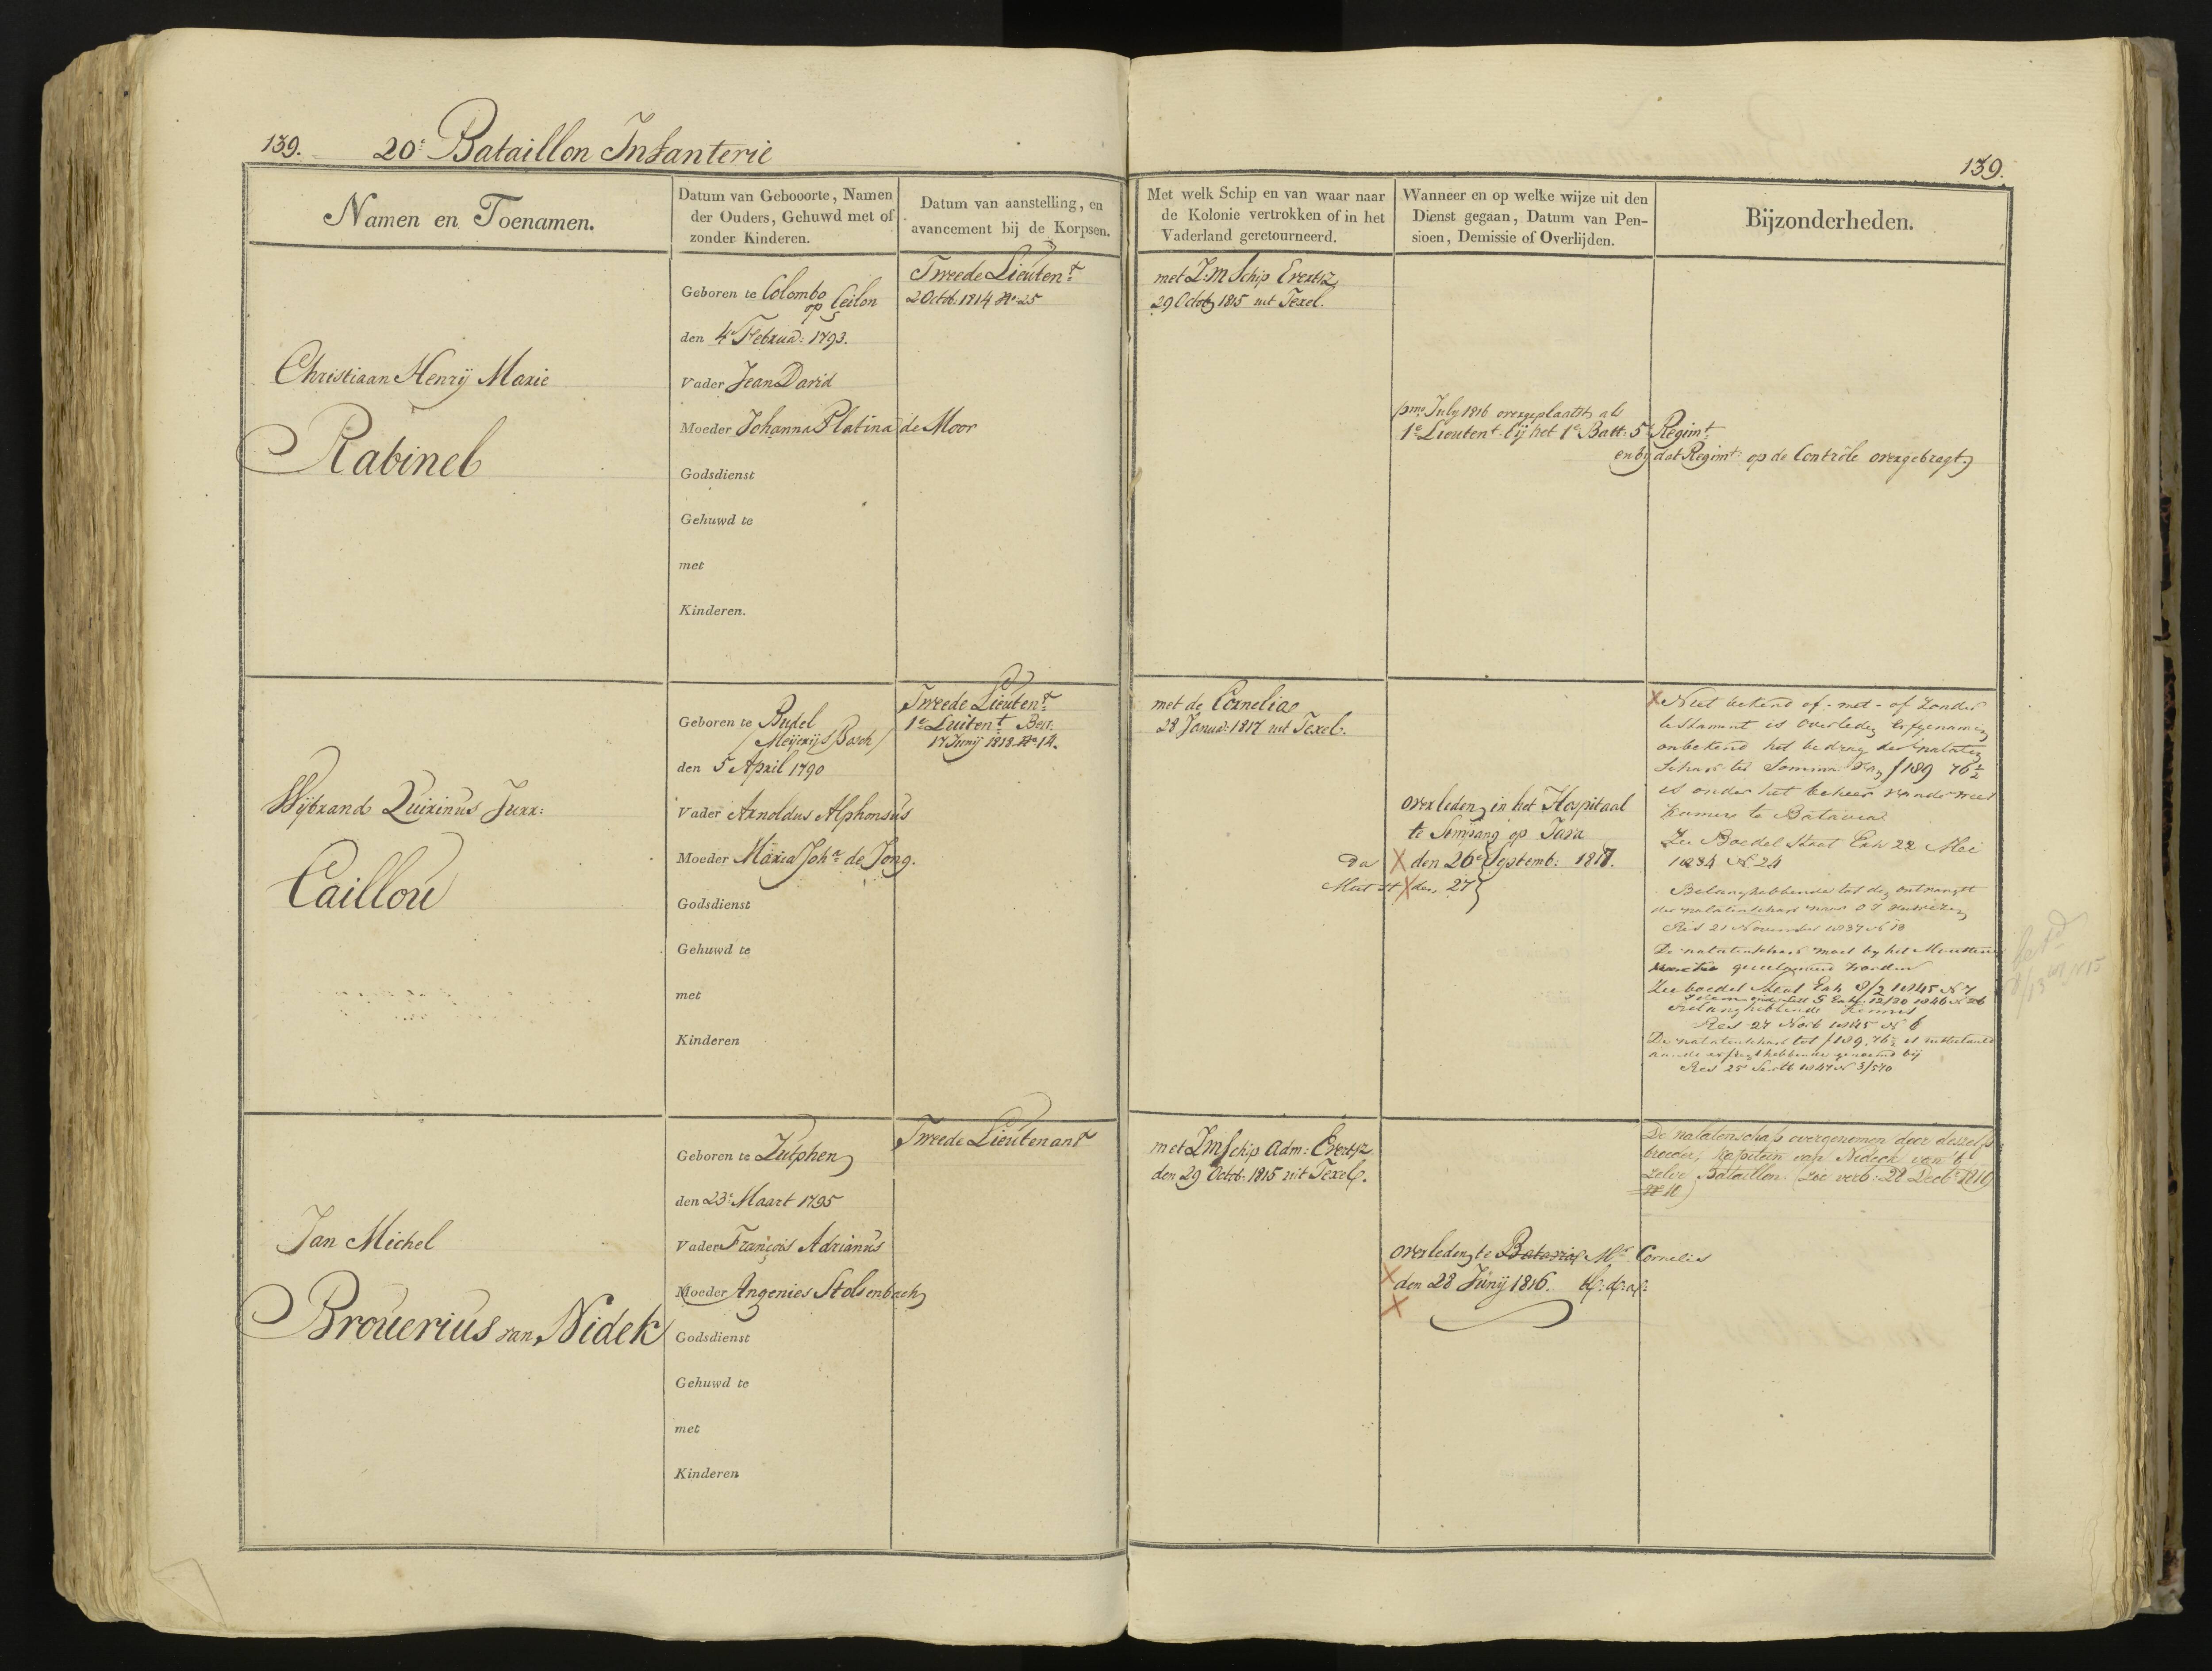 139. 20e Bataillon Infanterie
139.
Namen en Toenamen.
Datum van Gebooorte, Namen
der Ouders, Gehuwd met of
zonder Kinderen.
Datum van aanstelling, en
avancement bij de Korpsen.
Met welk Schip en van waar naar
de Kolonie vertrokken of in het
Vaderland geretourneerd.
Wanneer en op welke wijze uit den
Dienst gegaan, Datum van Pen-
sioen, Demissie of Overlijden.
Bijzonderheden.
Christiaan Henrij Marie
Rabinel
Geboren te Colombo
op Ceilon
den 4e Februa: 1793.
Vader Jean David
Moeder Johanna Platina de Moor
Godsdienst
Gehuwd te
met
Kinderen.
Tweede Lieutent
2 Octob: 1814 No 25
met Z:M Schip Evertsz
29 Octob 1815 uit Texel.
pmo July 1816 overgeplaatst als
1e Lieutent bij het 1e Batt: 5e Regimt
en by dat Regimt op de Contrôle overgebragt
Wijbrand Quirinus Jurr:
Caillou
Geboren te Budel
/Meijerij S Bosch/
den 5 April 1790
Vader Arnoldus Alphonsus
Moeder Maria Joha de Jong.
Godsdienst
Gehuwd te
met
Kinderen
Tweede Lieutent
1e Luitent Besr.
17 Junij 1818 No 14.
met de Cornelia
28 Janua: 1817 uit Texel.
overleden in het Hospitaal
te Semarang op Java
X den 26e Septemb: 1817.
X den, 27
X Niet bekend of - met - of zonder
testament is overleden erfgenamen
onbekend het bedrag der nalaten
schap ter somma van f 189 76½
is onder het beheer van de wees
kamer te Batavia
Zie Boedel Staat Exh 22 Mei
1834 No 24
Belanghebbende tot den ontvangst
der nalatenschap naar O I
Res 21 November 1837 No 18
De nalatenschap moet by het
Zie boedel Exh 8/2 1845 No 7
Belanghebbende
Res 27 Novb 1845 No 6
De nalatenschap tot f 189,76½ is
aan de genoemd bij
Res 25 Septb 1847 No 3/570
Jan Michel
Brouerius van Nidek
Geboren te Zutphen
den 23e Maart 1795
Vader François Adrianus
Moeder Angenies Stolsenbach
Godsdienst
Gehuwd te
met
Kinderen
Tweede Lieutenant
met ZM Schip Adm: Evertsz
den 29 Octob: 1815 uit Texel.
overleden te Batavia Mr Cornelis
X den 28 Junij 1816.
X
De nalatenschap overgenomen door deszelfs
broeder, kapitein van Nideck van 't
zelve Bataillon. (zie verb: 28 Decbr 1819